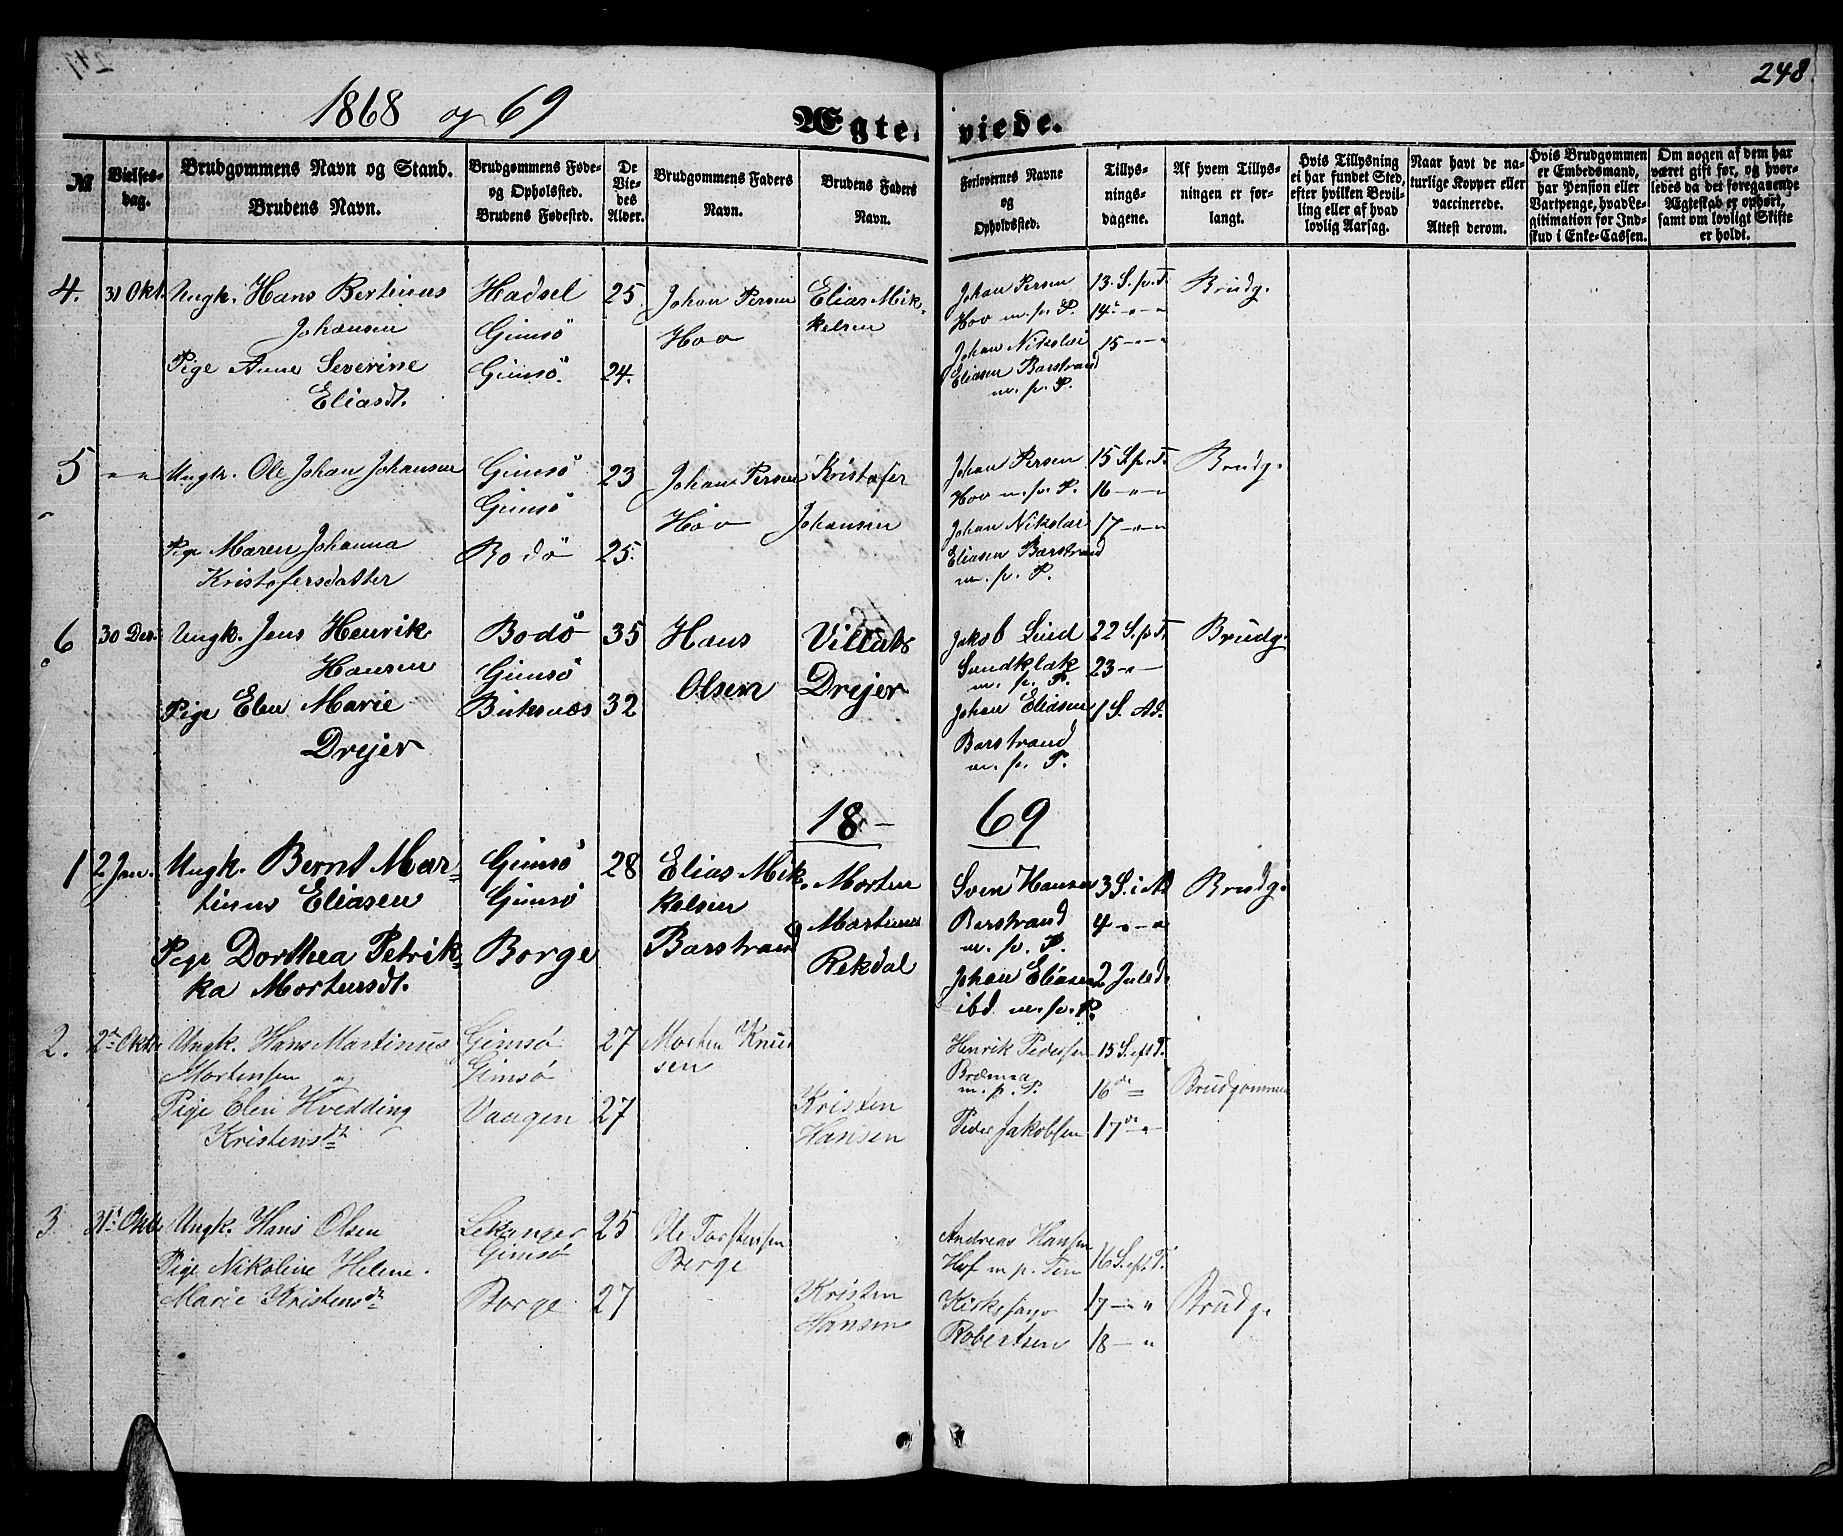 248
1868 og 69
Ægte- viede.
№
Vielses-
dag.
Brudgommens Navn og Stand.
Brudens Navn.
Brudgommens Føde-
og Opholssted.
Brudens Fødested.
De
Vie-
des
Alder.
Brudgommens Faders
Navn.
Brudens Faders
Navn.
Forlovernes Navne
og
Opholdssted.
Tillys-
nings-
dagene.
Af hvem Tillys-
ningen er for-
langt.
Hvis Tillysning
ei har fundet Sted,
efter hvilken Bevil-
ling eller af hvad
lovlig Aarsag.
Naar havt de na-
turlige Kopper eller
vaccinerede.
Attest derom.
Hvis Brudgommen
er Embedsmand,
har Pension eller
Vartpenge, hvad Le-
gitimation for Ind-
skud i Enke-Cassen.
Om nogen af dem har
været gift før, og hvor-
ledes da det foregaaende
Ægteskab er ophørt,
samt om lovligt Skifte
er holdt.
4.
31 Okt.
Ungk. Hans Bertinus
Johansen
Pige Anne Severine
Eliasdt.
Hadsel
Gimsö
Gimsö.
25
24.
Johan Persen
Hov
Elias Mik-
kelsen
Johan Persen
Hov m. p. P.
Johan Nikolai
Eliasen Barstrand
m. p. P.
13. S. p. T.
14 " "
15 - " "
Brudg.
5
" "
Ungk. Ole Johan Johansen
Pige Maren Johanna
Kristofersdatter
Gimsö
Gimsö
Bodö
23
25.
Johan Persen
Hov
Kristofer
Johansen
Johan Persen
Hov m. p. P.
Johan Nikolai
Eliasen Barstrand
m. p. P.
15 S. p. T.
16 - " -
17 - " "
Brudg.
6
30 Des.
Ungk. Jens Henrik
Hansen
Pige Elen Marie
Drejer
Bodö
Gimsö
Buksnæs
35
32
Hans
Olsen
Villats
Drejer
Jakob Lind
Sundklak
m. p. P.
Johan Eliasen
Barstrand
m. p. P.
22 S. p. T.
23 - " -
1 S. Ad.
Brudg.
18- 69
1
2 Jan.
Ungk. Bernt Mar-
tinus Eliasen
Pige Dorthea Petrik-
ka Mortensdt.
Gimsö
Gimsö
Borge
28
Elias Mik-
kelsen
Barstrand
Morten
Martinus
Rekdal
Sven Hansen
Barstrand
m. p. P.
Johan Eliasen
ibd m. p. P.
3 S. i Ad
4 - " "
2 Juled.
Brudg.
2.
2den Oktb
Ungk. Hans Martinus
Mortensen og
Pige Elen Hvedding
Kristensdt
Gimsø
Gimsø
Vaagen
27
27
Morten Knud
sen
Kristen
Hansen
Henrik Pedersen
Brenna
m. p. P.
Peder Jakobsen
15 S. eft T.
16de =
17de "
Brudgommen
3
31t Oktb
Ungk. Hans Olsen
Pige Nikoline Helene
Marie Kristensdt
Lekanger
Gimsø
Borge
25
27
Ole Torstensen
Berge
Kristen
Hansen
Andreas Hansen
Hof m. p. Pen
Robertsen
16 S. eft T.
17 - " "
18 - "
Brudg.